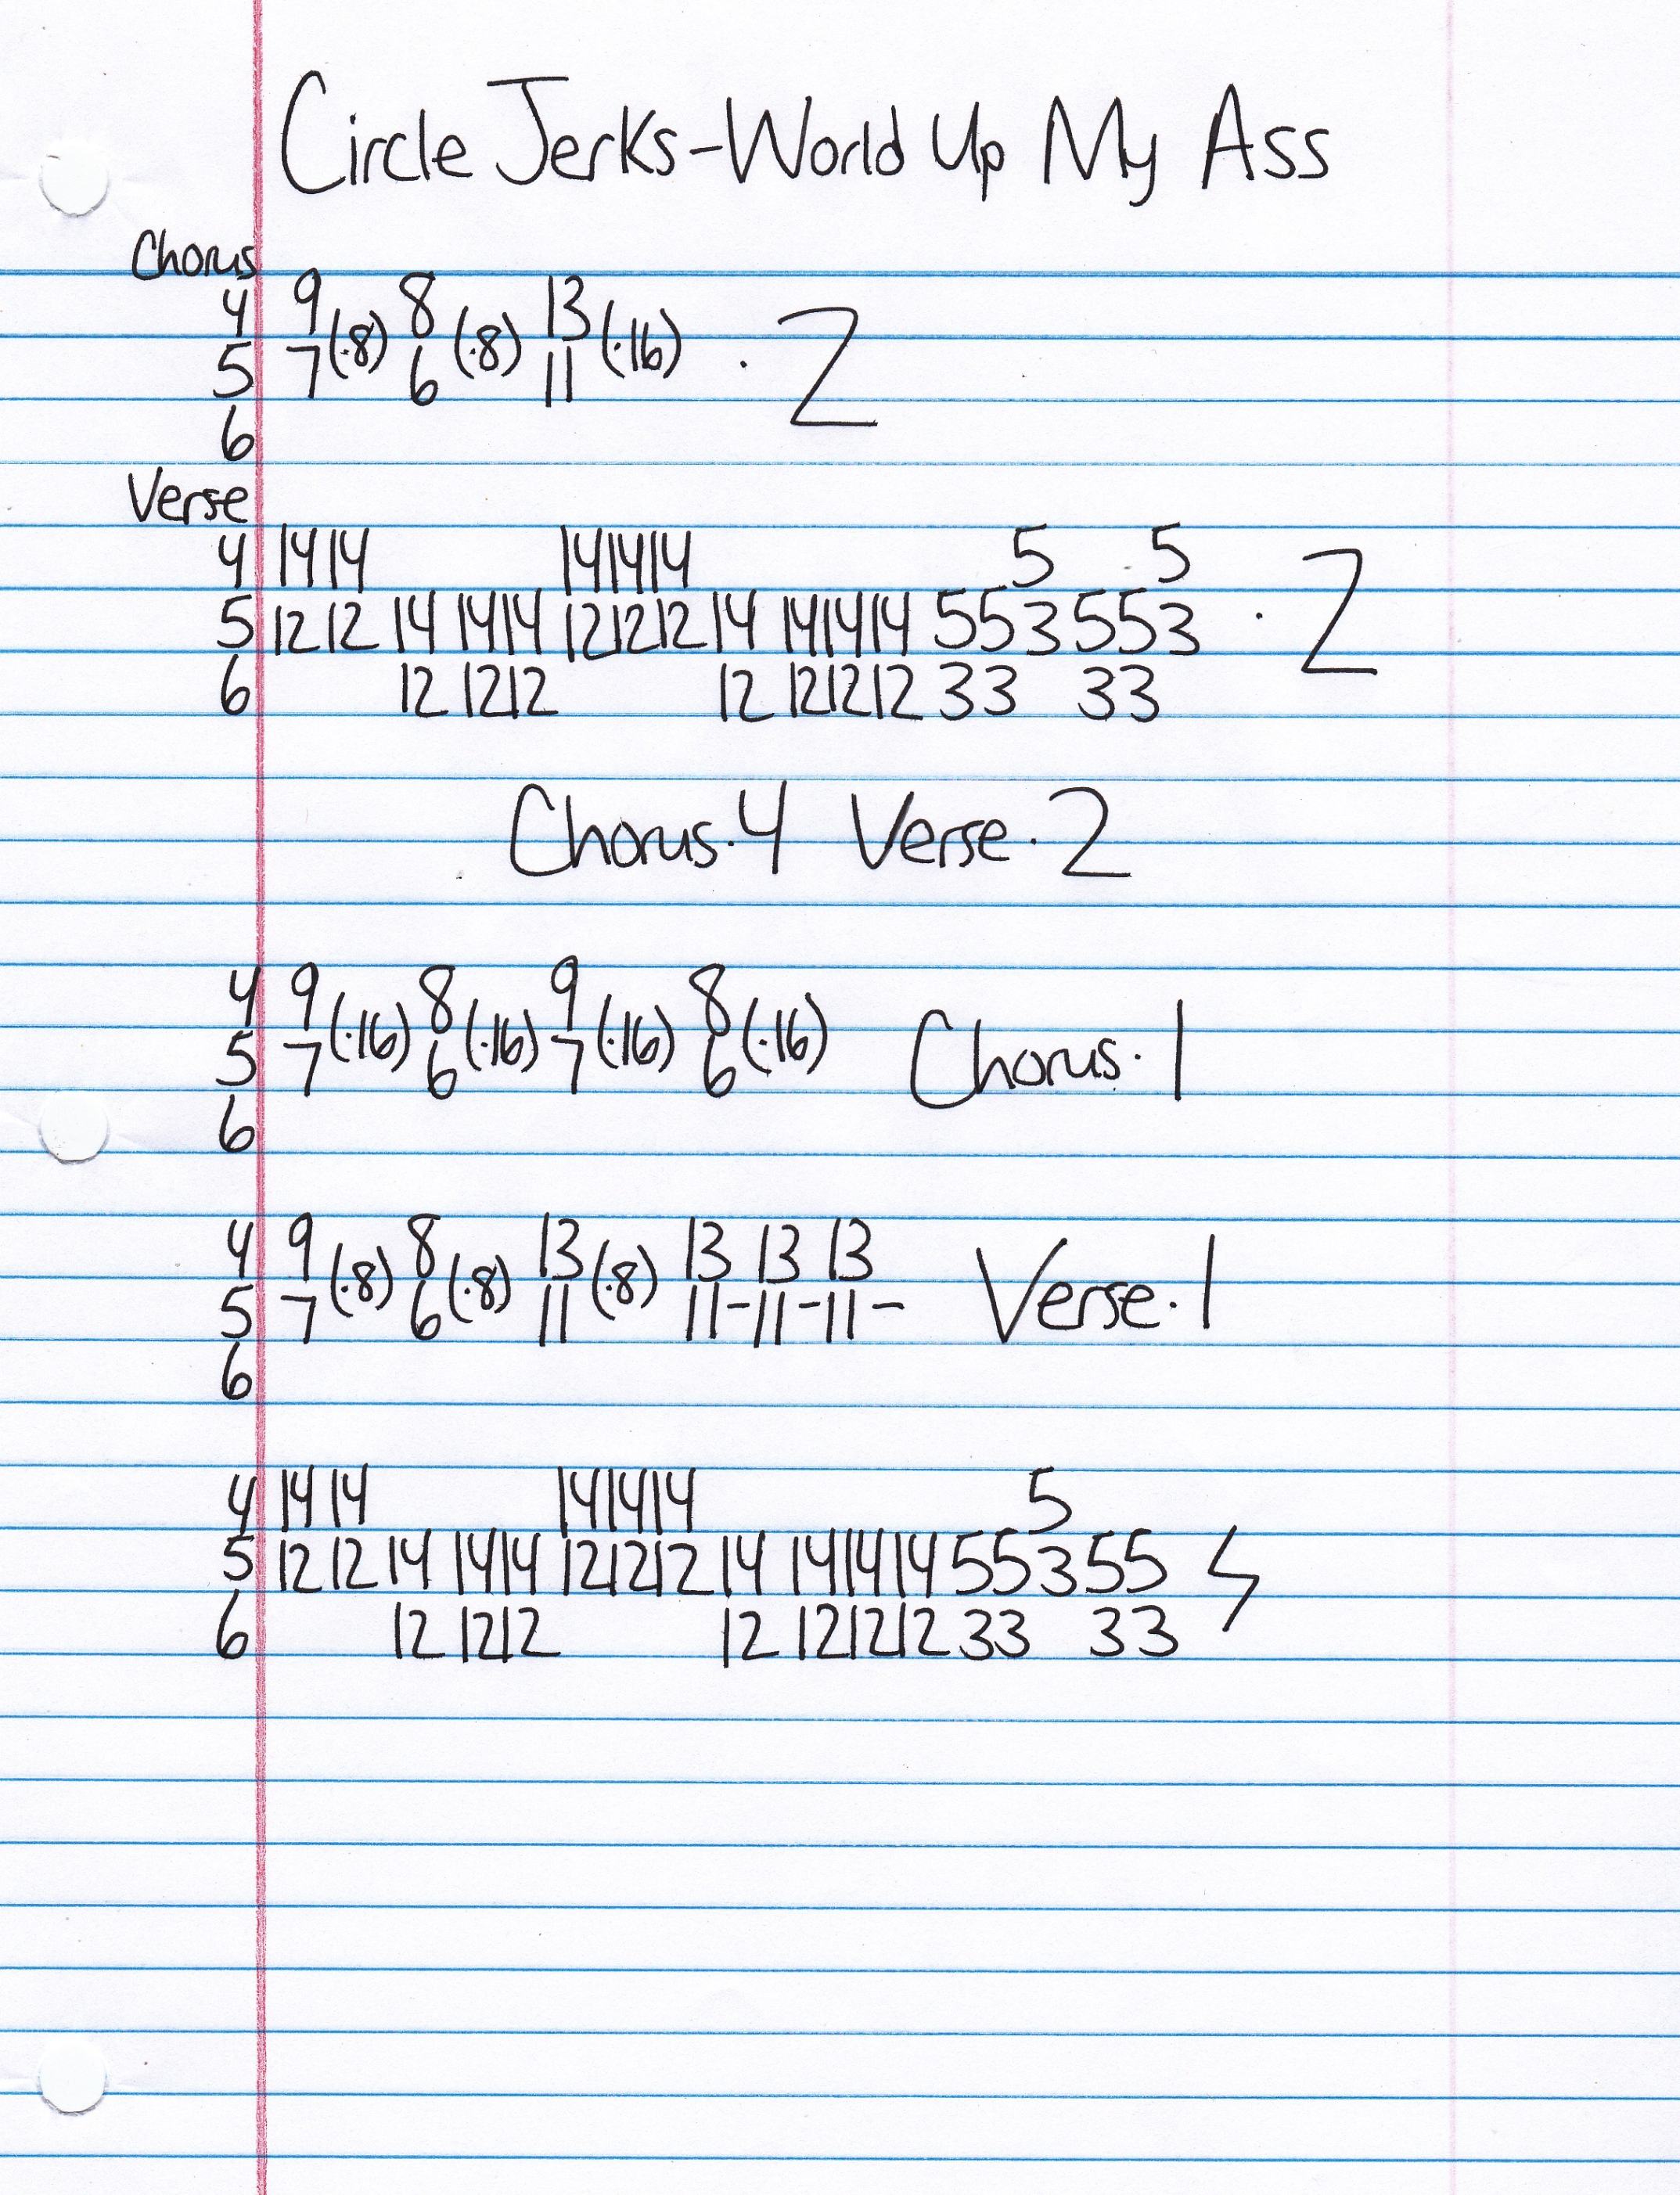 Circle Jerks-World Up My Ass
Chorus
4 9 8 13
5 7 (·8) 6 (·8) 11 (·16) · 2
6
Verse
4 14 14 14 14 14 5 5
5 12 12 14 14 14 12 12 12 14 14 14 14 5 5 3 5 5 3 · 2
6 12 12 12 12 12 12 12 3 3 3 3
Chorus·4 Verse·2
4 9 8 9 8
5 7 (·16) 6 (·16) 7 (·16) 6 (·16) Chorus·1
6
4 9 8 13 13 13 13
5 7 (·8) 6 (·8) 11 (·8) 11-11-11- Verse·1
6
4 14 14 14 14 14 5
5 12 12 14 14 14 12 12 12 14 14 14 14 5 5 3 5 5
6 12 12 12 12 12 12 12 3 3 3 3